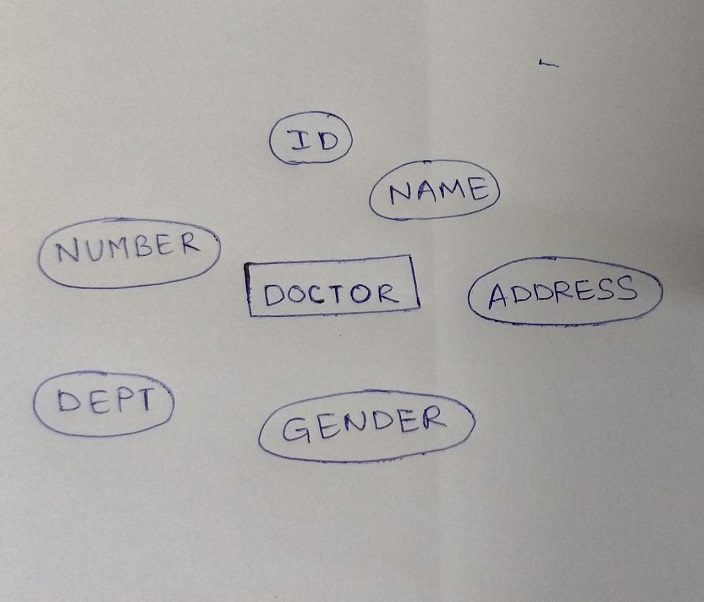 ID
NAME
NUMBER
DOCTOR
ADDRESS
DEPT
GENDER